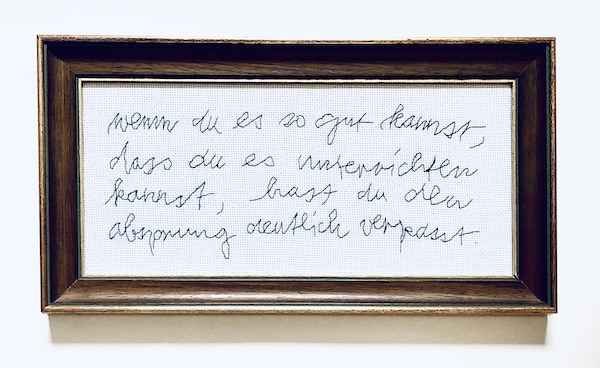 wenn du es so gut kannst,
dass du es unterrichten
kannst, hast du den
absprung deutlich verpasst.